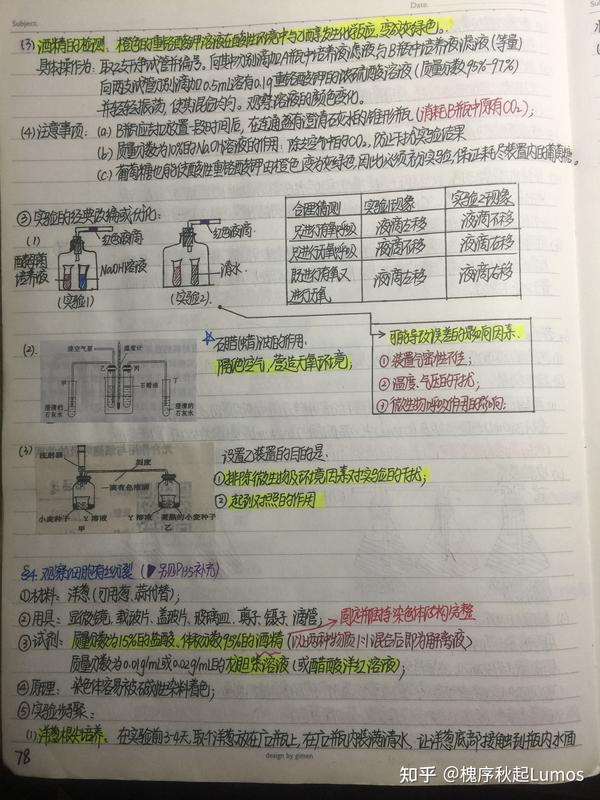 Subject:
Date.
(3) 酒精的检测: 橙色的重铬酸钾溶液在酸性环境中与乙醇发生化学反应, 变成灰绿色。
具体操作为: 取2支干净试管并编号。向其中分别滴加A瓶中培养液滤液与B瓶中培养液滤液(等量)
向两支试管分别滴加0.5mL溶有0.1g重铬酸钾的浓硫酸溶液(质量分数95%-97%)
并轻轻振荡, 使其混合均匀。观察溶液的颜色变化。
(4) 注意事项: (a) B瓶应封口放置一段时间后, 在连通盛有澄清石灰水的锥形瓶(消耗B瓶中原有CO₂);
(b) 质量分数为10%的NaOH溶液的作用: 除去空气中的CO₂, 防止干扰实验结果
(c) 葡萄糖也能使酸性重铬酸钾由橙色变为灰绿色, 因此必须充分实验, 保证耗尽装置内的葡萄糖。
② 实验的经典改编或优化:
(1)
红色液滴
红色液滴
酵母菌
培养液
NaOH溶液
清水
(实验1)
(实验2)
合理猜测 实验1现象 实验2现象
只进行有氧呼吸 液滴左移 液滴不移
只进行无氧呼吸 液滴不移 液滴右移
既进行有氧又
进行无氧 液滴左移 液滴右移
可能导致误差的影响因素:
① 装置气密性不佳;
② 温度、气压的干扰;
③ 微生物呼吸作用的影响;
(2).
接空气泵
温度计
甲 乙 丙 丁
石蜡油
澄清的
石灰水
澄清的
石灰水
石蜡(油)油的作用:
隔绝空气, 营造无氧环境;
(3)
注射器
刻度
一滴有色液滴
小麦种子 Y溶液 Y溶液 煮熟的小麦种子
甲 乙
设置乙装置的目的是:
① 排除微生物及环境因素对实验的干扰;
② 起到对照的作用
§4. 观察细胞有丝分裂 (另见P135补充)
① 材料: 洋葱(可用葱、蒜代替);
② 用具: 显微镜, 载玻片、盖玻片、玻璃皿、剪子、镊子、滴管;
固定并维持染色体结构完整
③ 试剂: 质量分数为15%的盐酸、体积分数95%的酒精(以上两种物质1:1混合后即为解离液)
质量分数为0.01g/mL或0.02g/mL的龙胆紫溶液(或醋酸洋红溶液);
④ 原理: 染色体容易被碱性染料着色;
⑤ 实验步骤:
(1) 洋葱根尖培养: 在实验前3-4天, 取个洋葱放在广口瓶上, 在广口瓶内装满清水, 让洋葱底部接触到瓶内水面
78
design by gimen
知乎 @槐序秋起Lumos